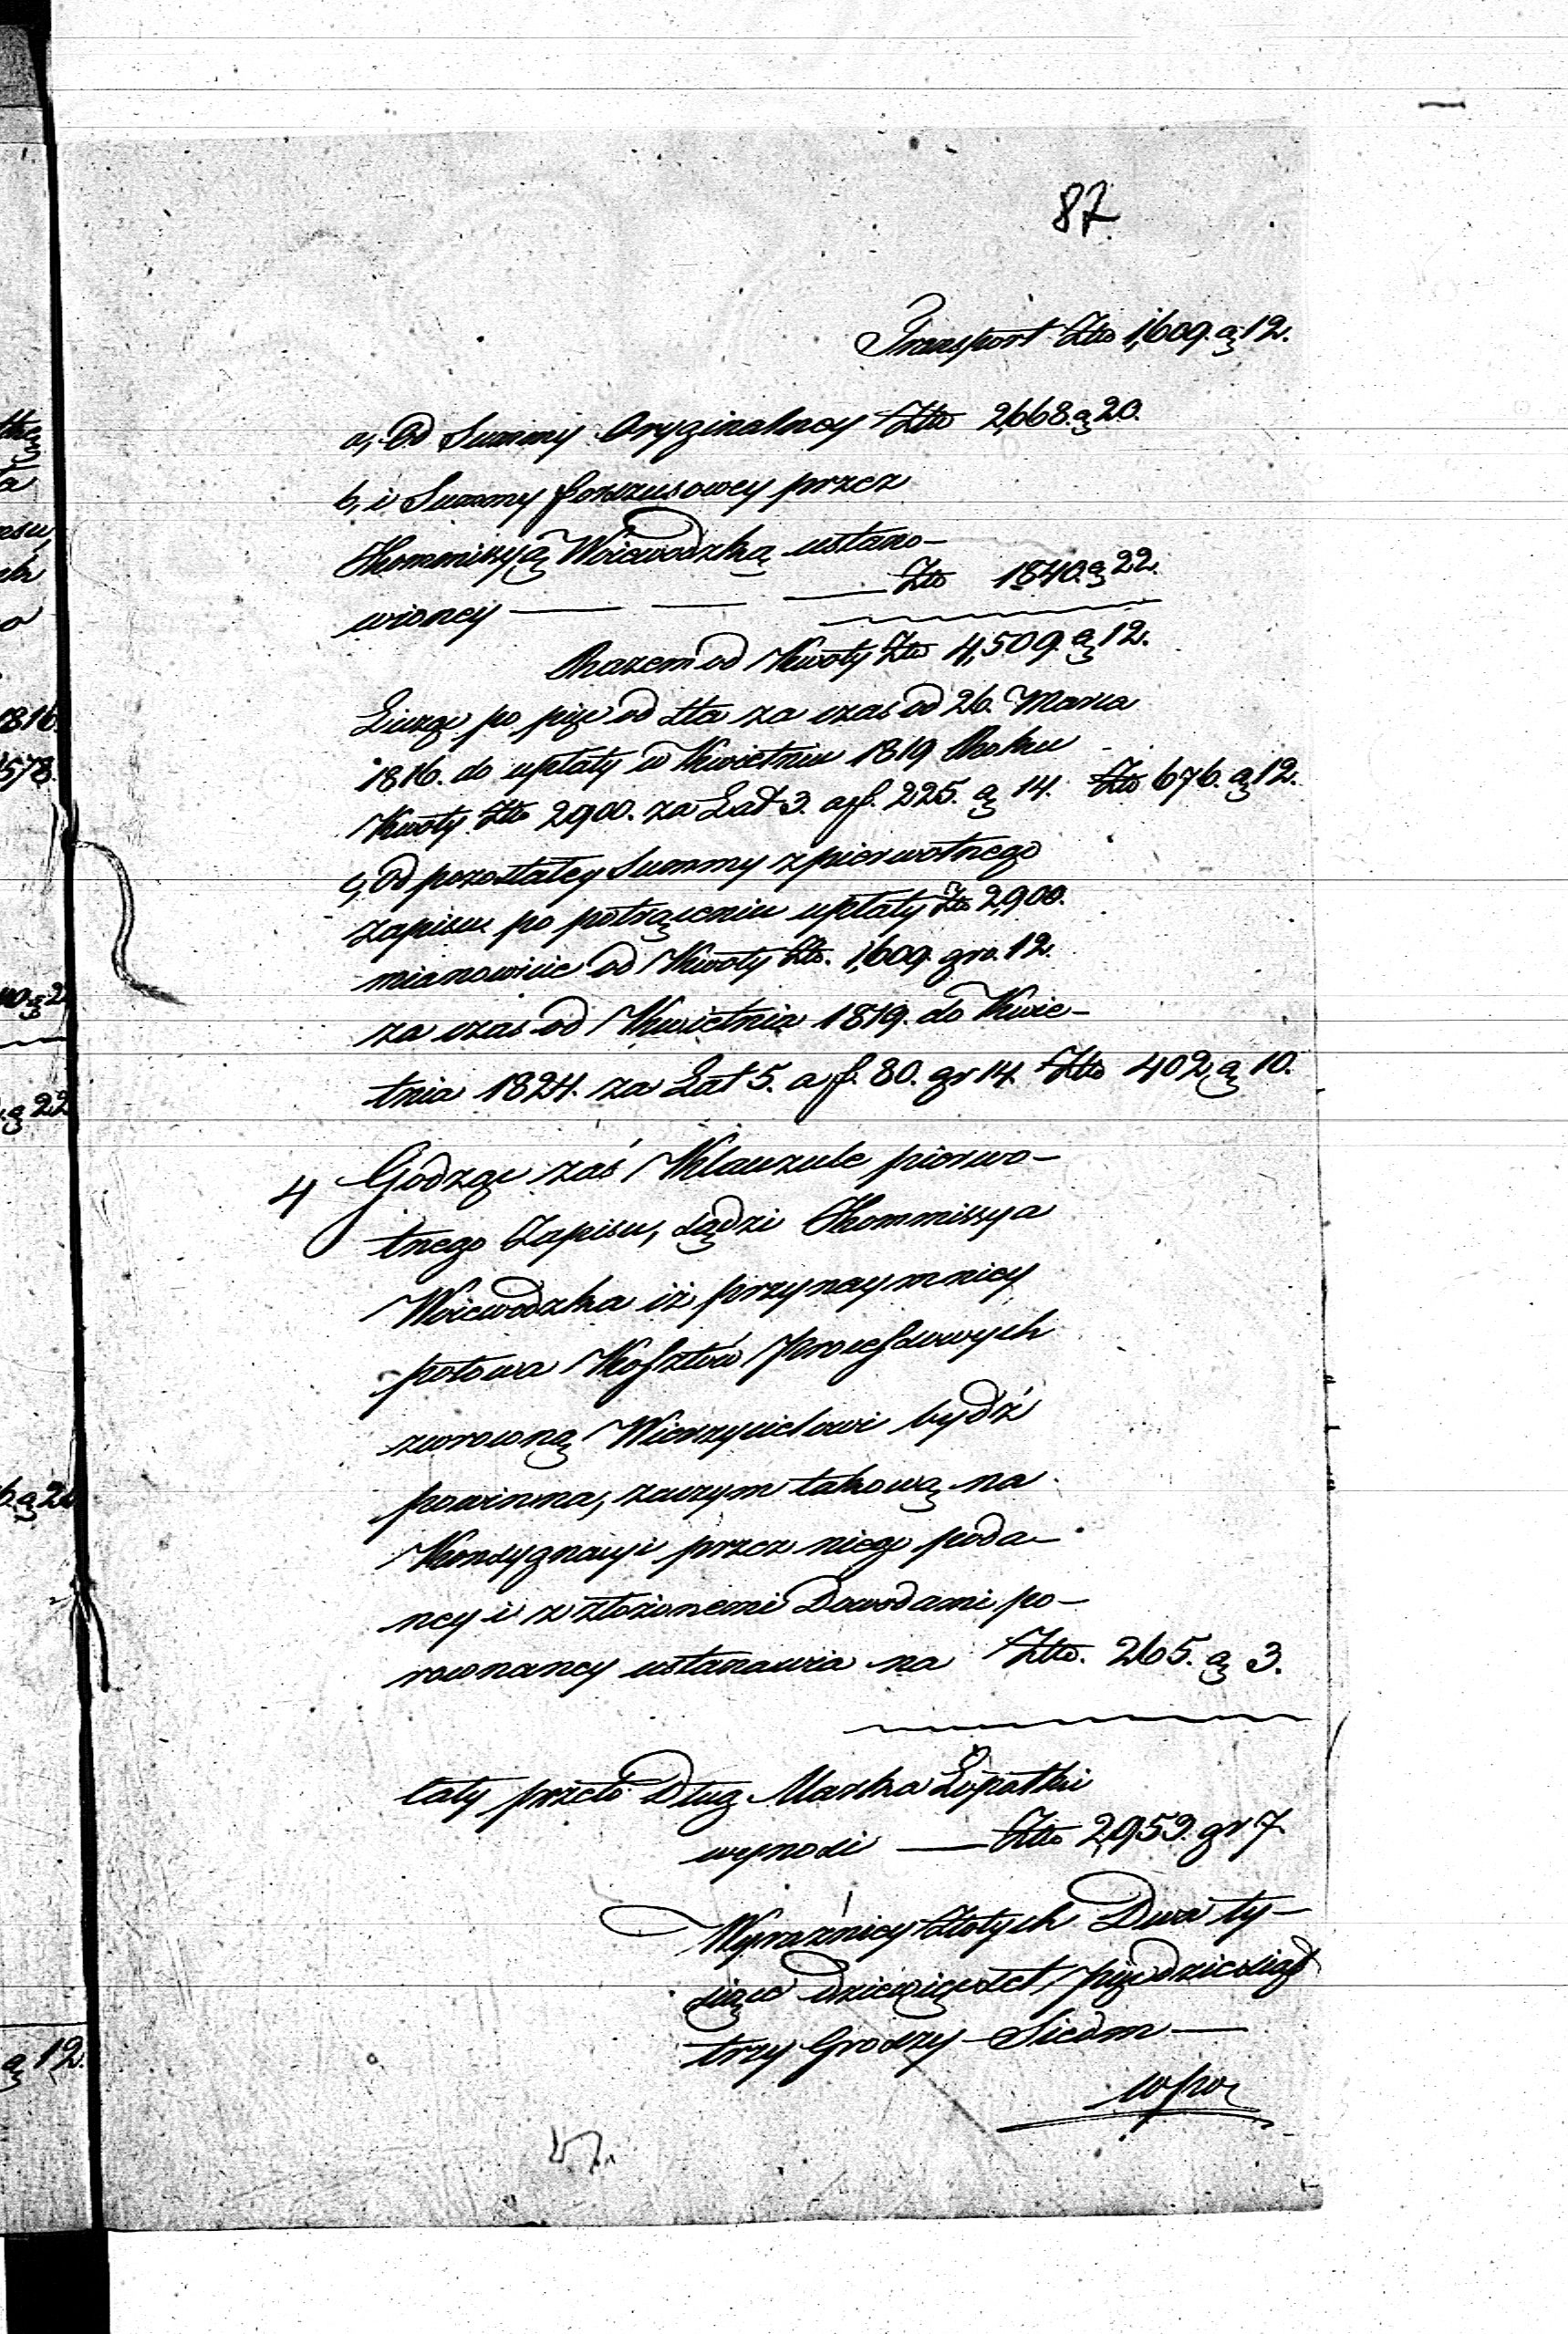 87.
Transport Złto 1,609. g 12.
a, Od Summy Oryginalney Złto 2,668. g 20.
b, i Summy forszusowey przez
Kommissyą Woiewodzką ustano-
wioney — — — Złto 1840. g 22.
Razem od Kwoty Złto 4,509. g 12.
Licząc po pięć od sta za czas od 26. Marca
1816. do upłaty w Kwietniu 1819 Roku
Kwoty Złto 2900. za Lat 3. a f. 225. g 14. Złto 676. g 12.
c, Od pozostałey Summy z pierwotnego
zapisu po potrąceniu upłaty Złto 2,900.
mianowicie od Kwoty Złto. 1,609. gro. 12.
za czas od Kwietnia 1819. do Kwie-
tnia 1824. za Lat 5. a f. 80. gr 14. Złto 402 g 10.
4 Godząc zaś Klauzule pierwo-
tnego Zapisu, sądzi Kommissya
Woiewodzka iż przynaymniey
połowa Kosztów Processowych
zwrowną Wierzycielowi bydź
powinna, zaczym takową na
Konsygnacyi przez niego poda-
ney i z złożonemi Dowodami po-
rownaney ustanawia na Złto. 265. g 3.
Cały przeto Dług Marka Łopatki
wynosi — Złto 2,953. gr 7.
Wyraźniey Złotych Dwa ty-
siące dziewięćset pięćdziesiąt
trzy Groszy Siedm —